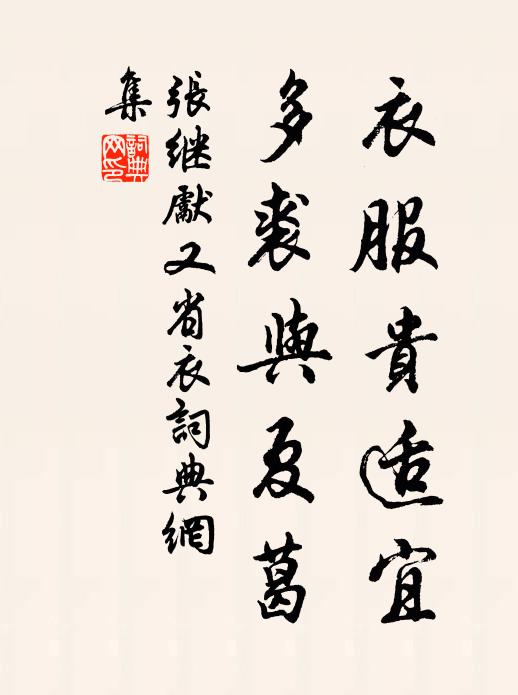 衣服貴适宜
多裘與夏葛
張继獻又省衣詞典網
集
詞典網印